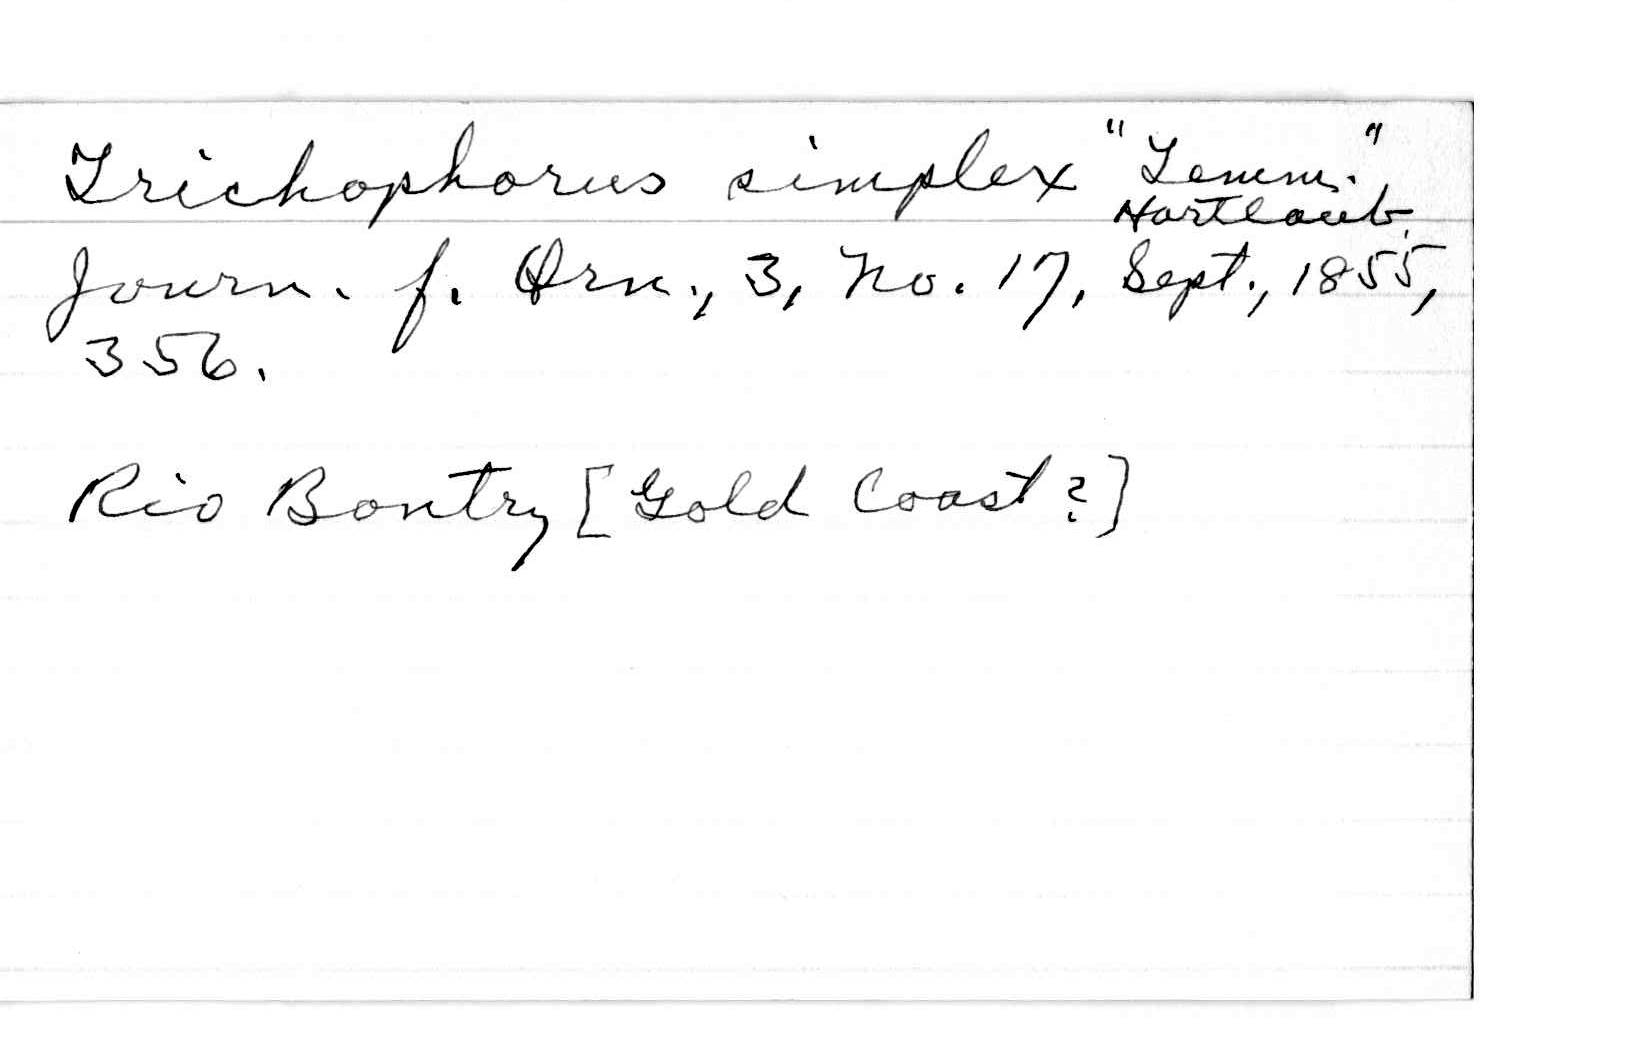 Trichophorus simplex "Temm.",
Hartlaub,
Journ. f. Orn., 3, No. 17, Sept., 1855,
356.
Rio Bontry [Gold Coast?]